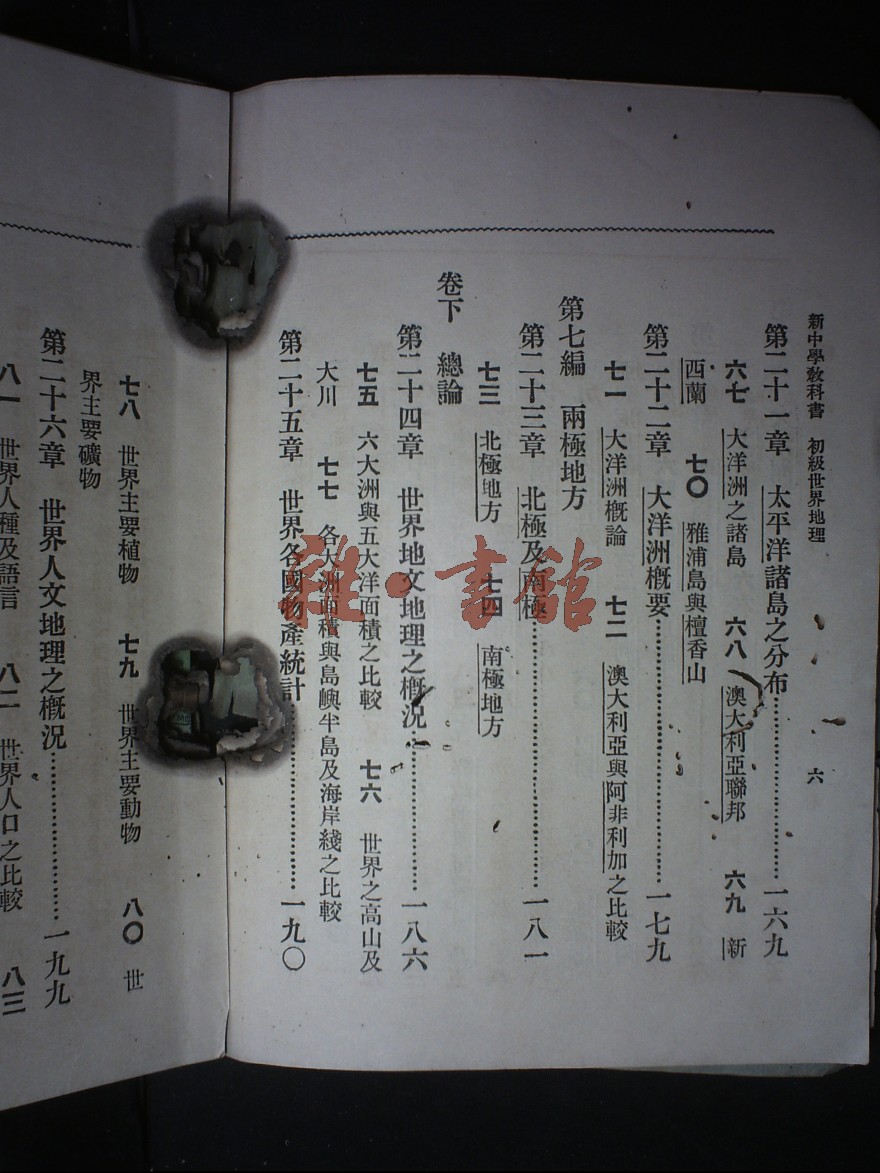 新中學教科書　初級世界地理　六
第二十一章　太平洋諸島之分布……一六九
六七　大洋洲之諸島　六八　澳大利亞聯邦　六九　新
西蘭　七〇　雅浦島與檀香山
第二十二章　大洋洲概要……一七九
七一　大洋洲概論　七二　澳大利亞與阿非利加之比較
第七編　兩極地方
第二十三章　北極及南極……一八一
七三　北極地方　七四　南極地方
卷下　總論
第二十四章　世界地文地理之概況……一八六
七五　六大洲與五大洋面積之比較　七六　世界之高山及
大川　七七　各大洲面積與島嶼半島及海岸綫之比較
第二十五章　世界各國物產統計……一九〇
七八　世界主要植物　七九　世界主要動物　八〇　世
界主要礦物
第二十六章　世界人文地理之概況……一九九
八一　世界人種及語言　八二　世界人口之比較　八三
雜·書館